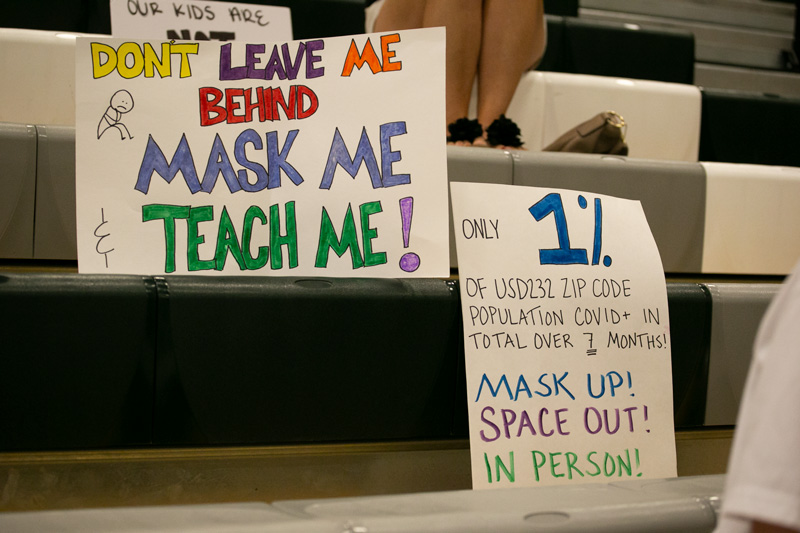 OUR KIDS ARE
NOT
DON'T LEAVE ME
BEHIND
MASK ME
&
TEACH ME!
ONLY 1%
OF USD232 ZIP CODE
POPULATION COVID+ IN
TOTAL OVER 7 MONTHS!
MASK UP!
SPACE OUT!
IN PERSON!